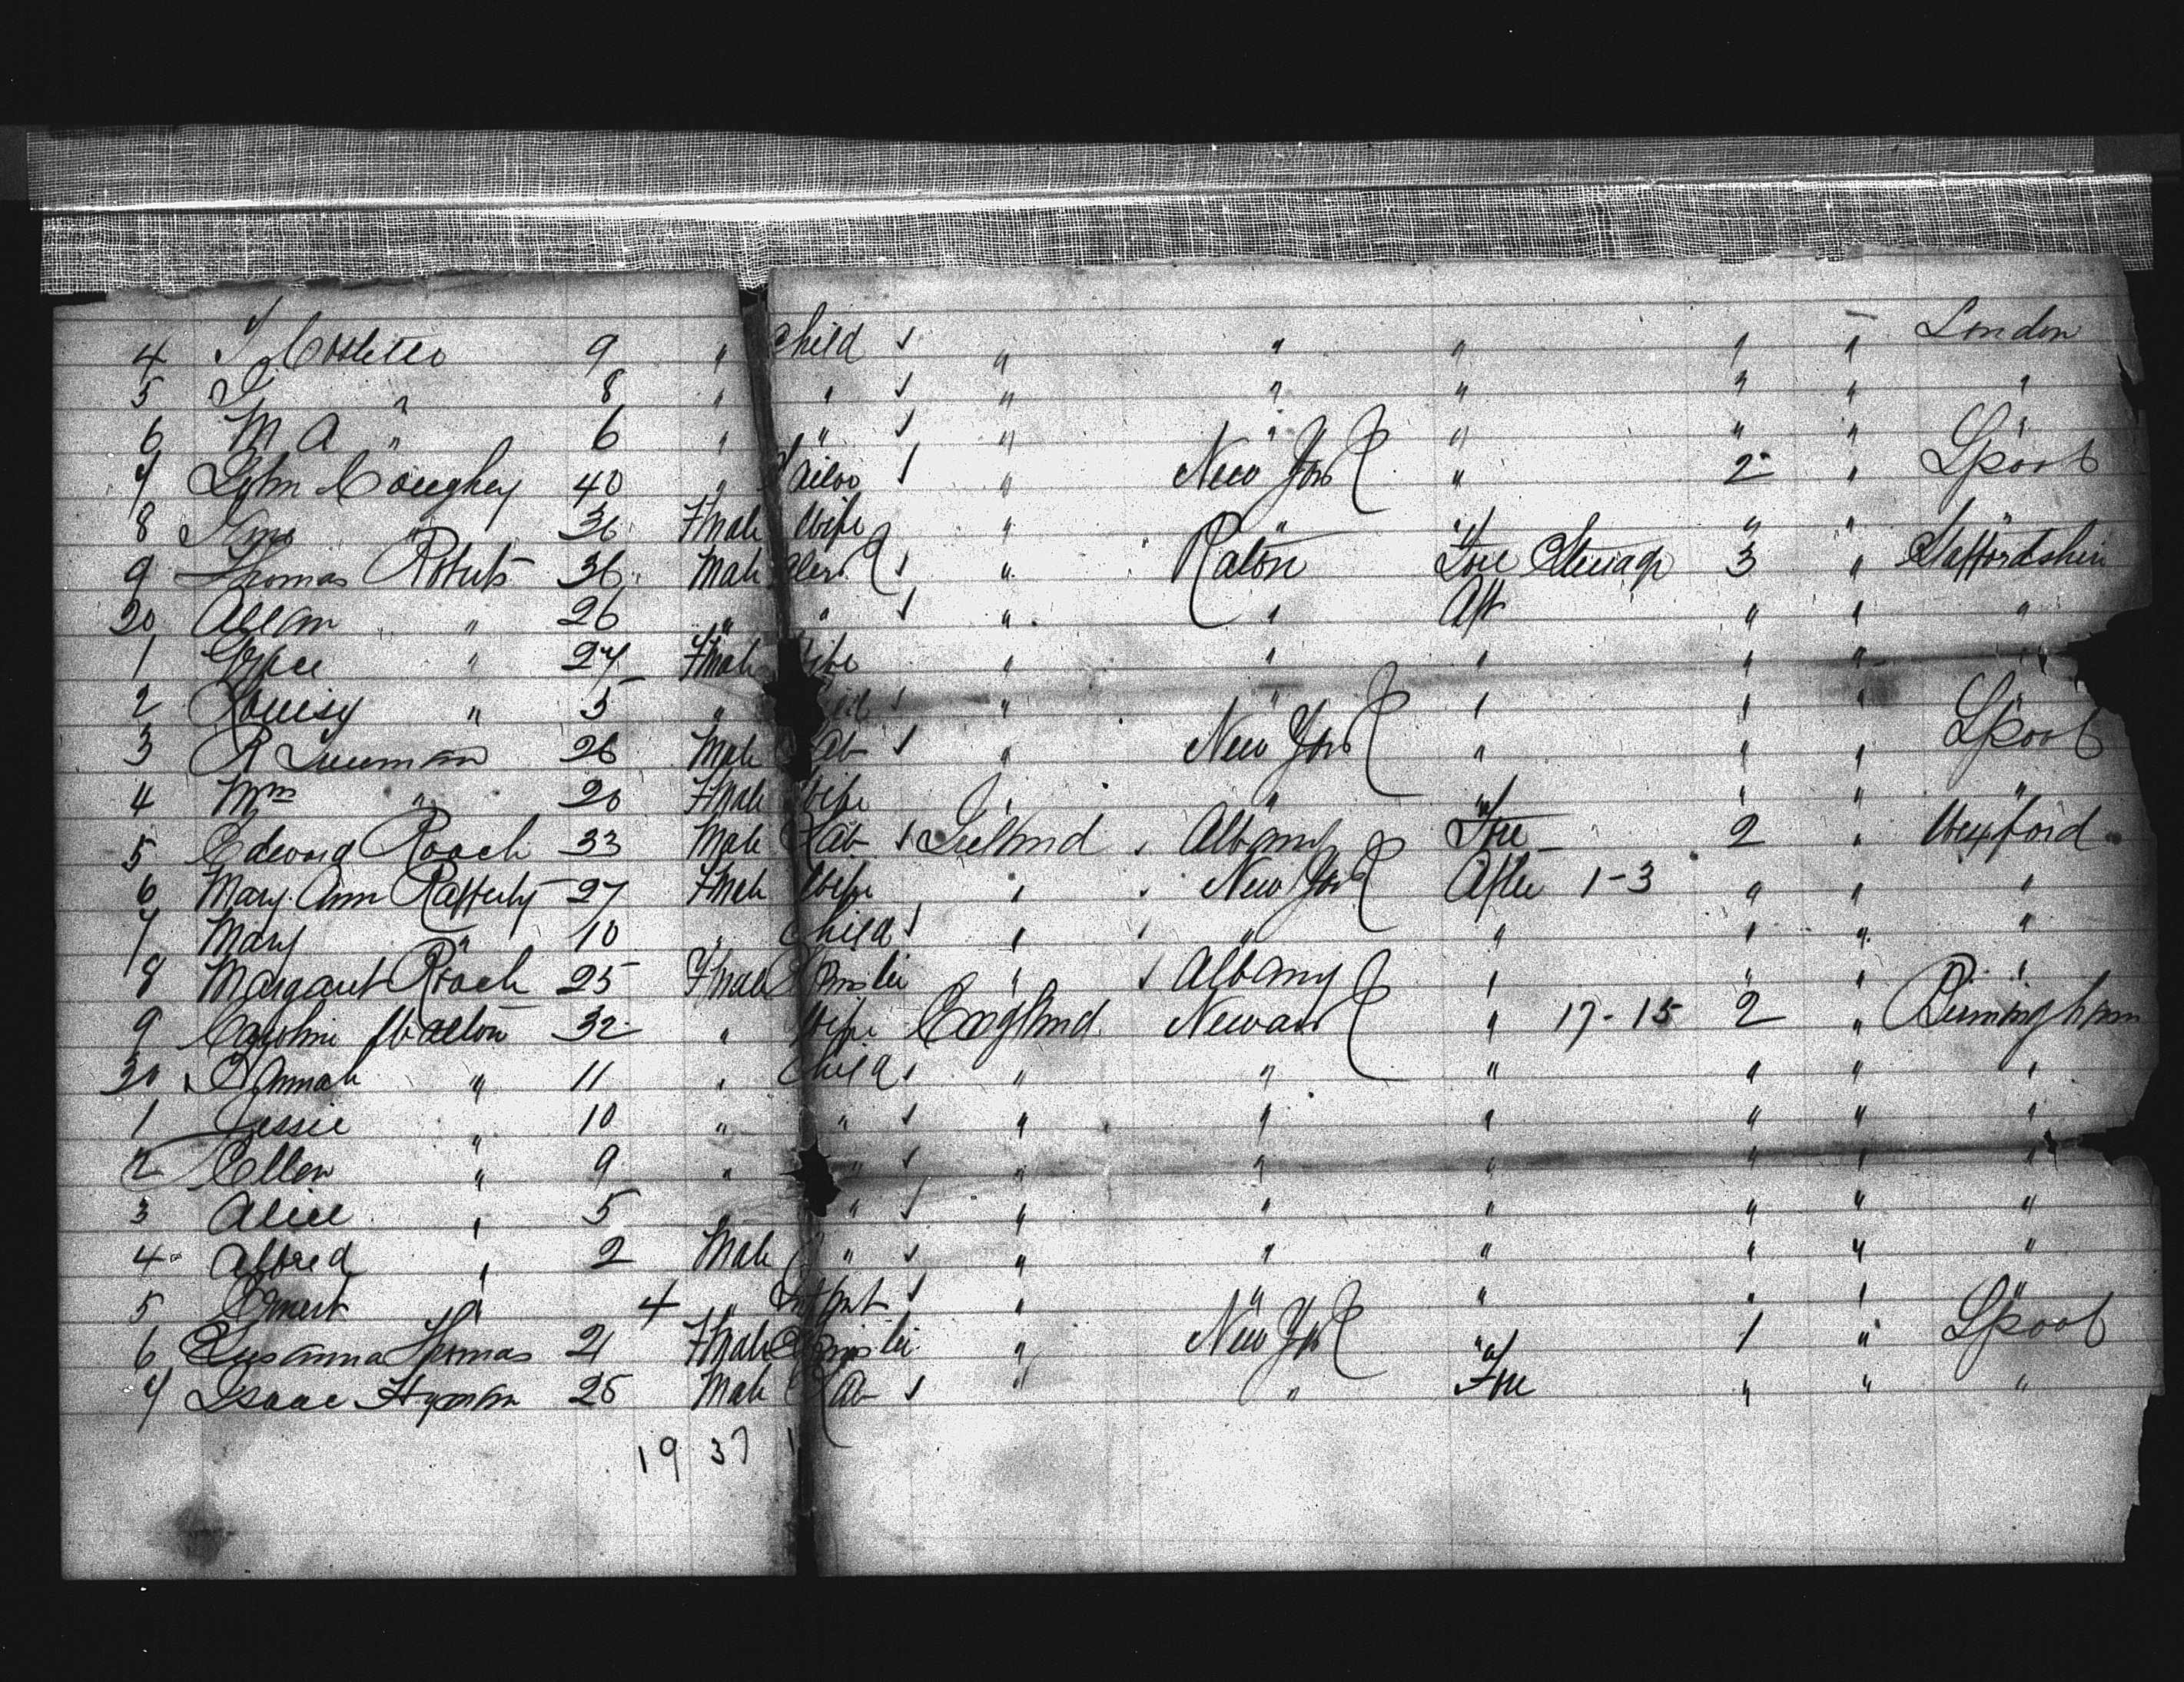 4 J Costello 9 " Child " " " " " London
5 J " 8 " " " " " " " "
6 M A " 6 " " " " " " " "
7 John Caughey 40 " Tailor " New York " 2 " Lpool
8 " 36 Fmale Wife " " " " " "
9 Thomas Roberts 36 Male Clerk " Raton Fore Steerage 3 " Staffordshire
20 Allan " 26 " " " " Aft " " "
1 Grace " 27 Fmale Wife " " " " " "
2 Louisy " 5 " Child " " " " " "
3 R 26 Male Lab " New York " " " Lpool
4 Mrs " 20 Fmale Wife " " " " " "
5 Edward Roach 33 Male Lab Ireland Albany Fore 2 " Wexford
6 Mary Ann Rafferty 27 Fmale Wife " New York After 1-3 " " "
7 Mary " 10 " Child " " " " " "
8 Margaret Roach 25 Fmale Spinster " Albany " " " "
9 Caroline Walton 32 " Wife England Newark " 17-15 2 " Birmingham
30 Hannah " 11 " Child " " " " " "
1 Jessie " 10 " " " " " " " "
2 Ellen " 9 " " " " " " " "
3 Alice " 5 " " " " " " " "
4 Alfred " 2 Male " " " " " " "
5 Ernest " 4 " Infant " " " " " "
6 Susanna Thomas 21 Fmale Spinster " New York " 1 " Lpool
7 Isaac Hyman 25 Male Lab " " Fore " " "
19 37 1